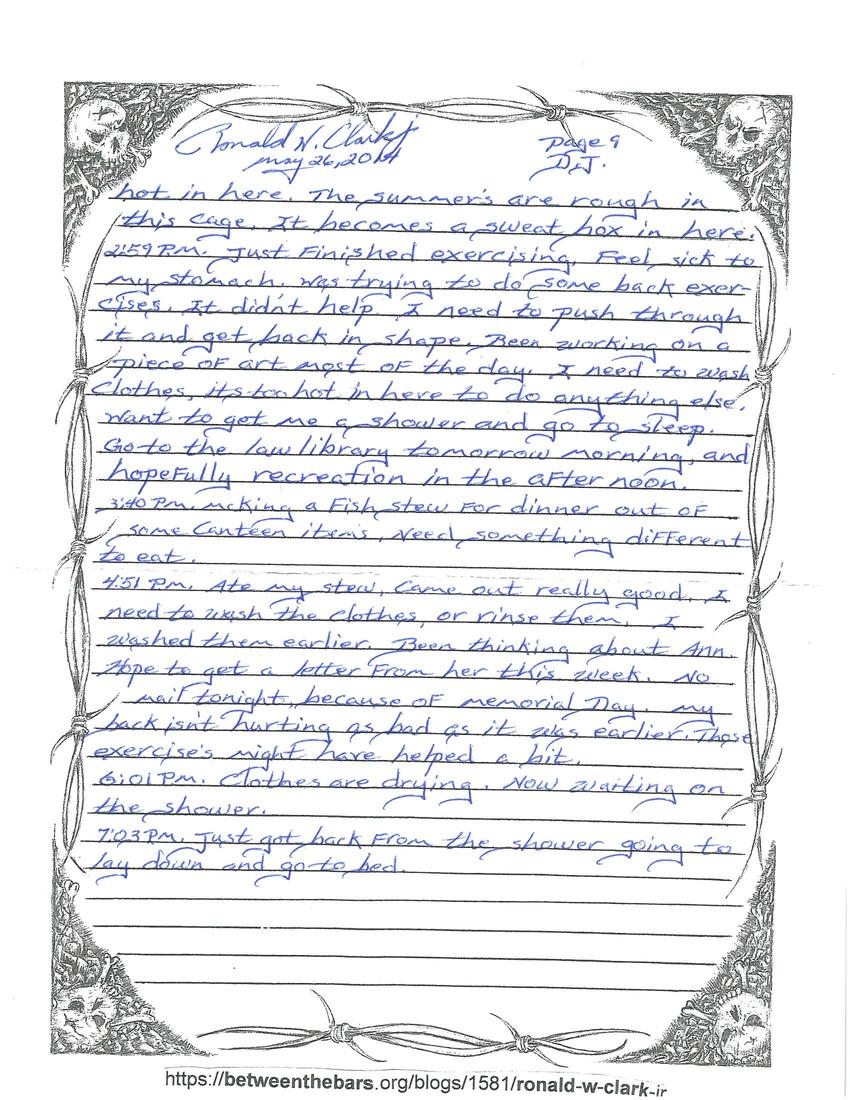 Ronald W. Clark Jr
May 26, 2014
Page 9
D.J.
hot in here. The summer's are rough in
this cage. It becomes a sweat box in here.
2:59 P.M. Just Finished exercising. Feel sick to
my stomach. Was trying to do some back exer-
cises. It didn't help. I need to push through
it and get back in shape. Been working on a
piece of art most of the day. I need to wash
Clothes, its too hot in here to do anything else.
Want to get me a shower and go to sleep.
Go to the law library tomorrow morning, and
hopefully recreation in the after noon.
3:40 P.M. Making a Fish stew For dinner out of
some Canteen items, Need something different
to eat.
4:51 P.M. Ate my stew, Came out really good. I
need to wash the clothes, or rinse them. I
washed them earlier. Been thinking about Ann.
Hope to get a letter From her this week. No
mail tonight, because of Memorial Day. My
back isn't hurting as bad as it was earlier. Those
exercise's might have helped a bit.
6:01 P.M. Clothes are drying. Now waiting on
the shower.
7:03 P.M. Just got back From the shower going to
lay down and go to bed.
https://betweenthebars.org/blogs/1581/ronald-w-clark-jr